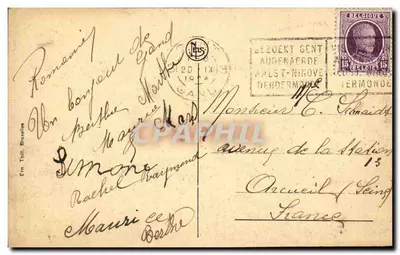 Romanie
Un bonjour de
Gand
Berthe Marthe
Maggie Max
Simone
Rachel Raymond
Maurice
Berthe
Ern. Thill, Bruxelles
20 IX
GENT
BEZOEKT GENT
AUDENAERDE
AALST-NINOVE
DENDERMONDE
TERMONDE
BELGIQUE
15 15
BELGIE
Monsieur
avenue de la Station
13
Arcueil (Seine)
France
Cartorum